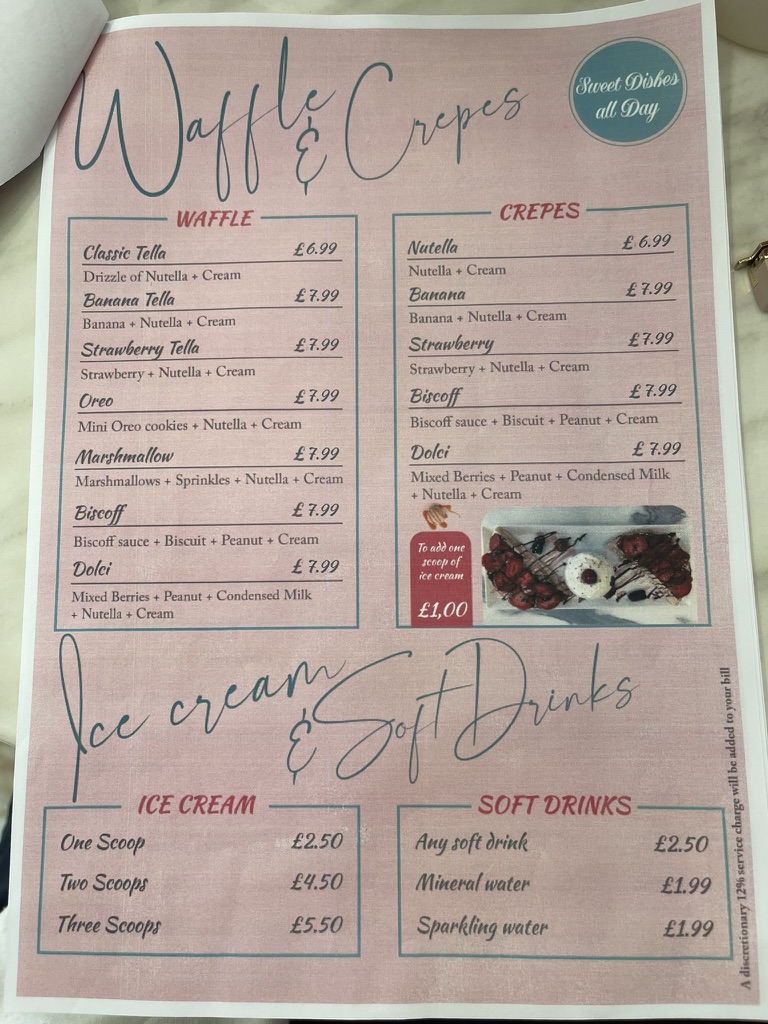 Waffle & Crepes
Sweet Dishes
all Day
WAFFLE
Classic Tella £6.99
Drizzle of Nutella + Cream
Banana Tella £7.99
Banana + Nutella + Cream
Strawberry Tella £7.99
Strawberry + Nutella + Cream
Oreo £7.99
Mini Oreo cookies + Nutella + Cream
Marshmallow £7.99
Marshmallows + Sprinkles + Nutella + Cream
Biscoff £7.99
Biscoff sauce + Biscuit + Peanut + Cream
Dolci £7.99
Mixed Berries + Peanut + Condensed Milk
+ Nutella + Cream
CREPES
Nutella £6.99
Nutella + Cream
Banana £7.99
Banana + Nutella + Cream
Strawberry £7.99
Strawberry + Nutella + Cream
Biscoff £7.99
Biscoff sauce + Biscuit + Peanut + Cream
Dolci £7.99
Mixed Berries + Peanut + Condensed Milk
+ Nutella + Cream
To add one
scoop of
ice cream
£1,00
Ice cream & Soft Drinks
ICE CREAM
One Scoop £2.50
Two Scoops £4.50
Three Scoops £5.50
SOFT DRINKS
Any soft drink £2.50
Mineral water £1.99
Sparkling water £1.99
A discretionary 12% service charge will be added to your bill